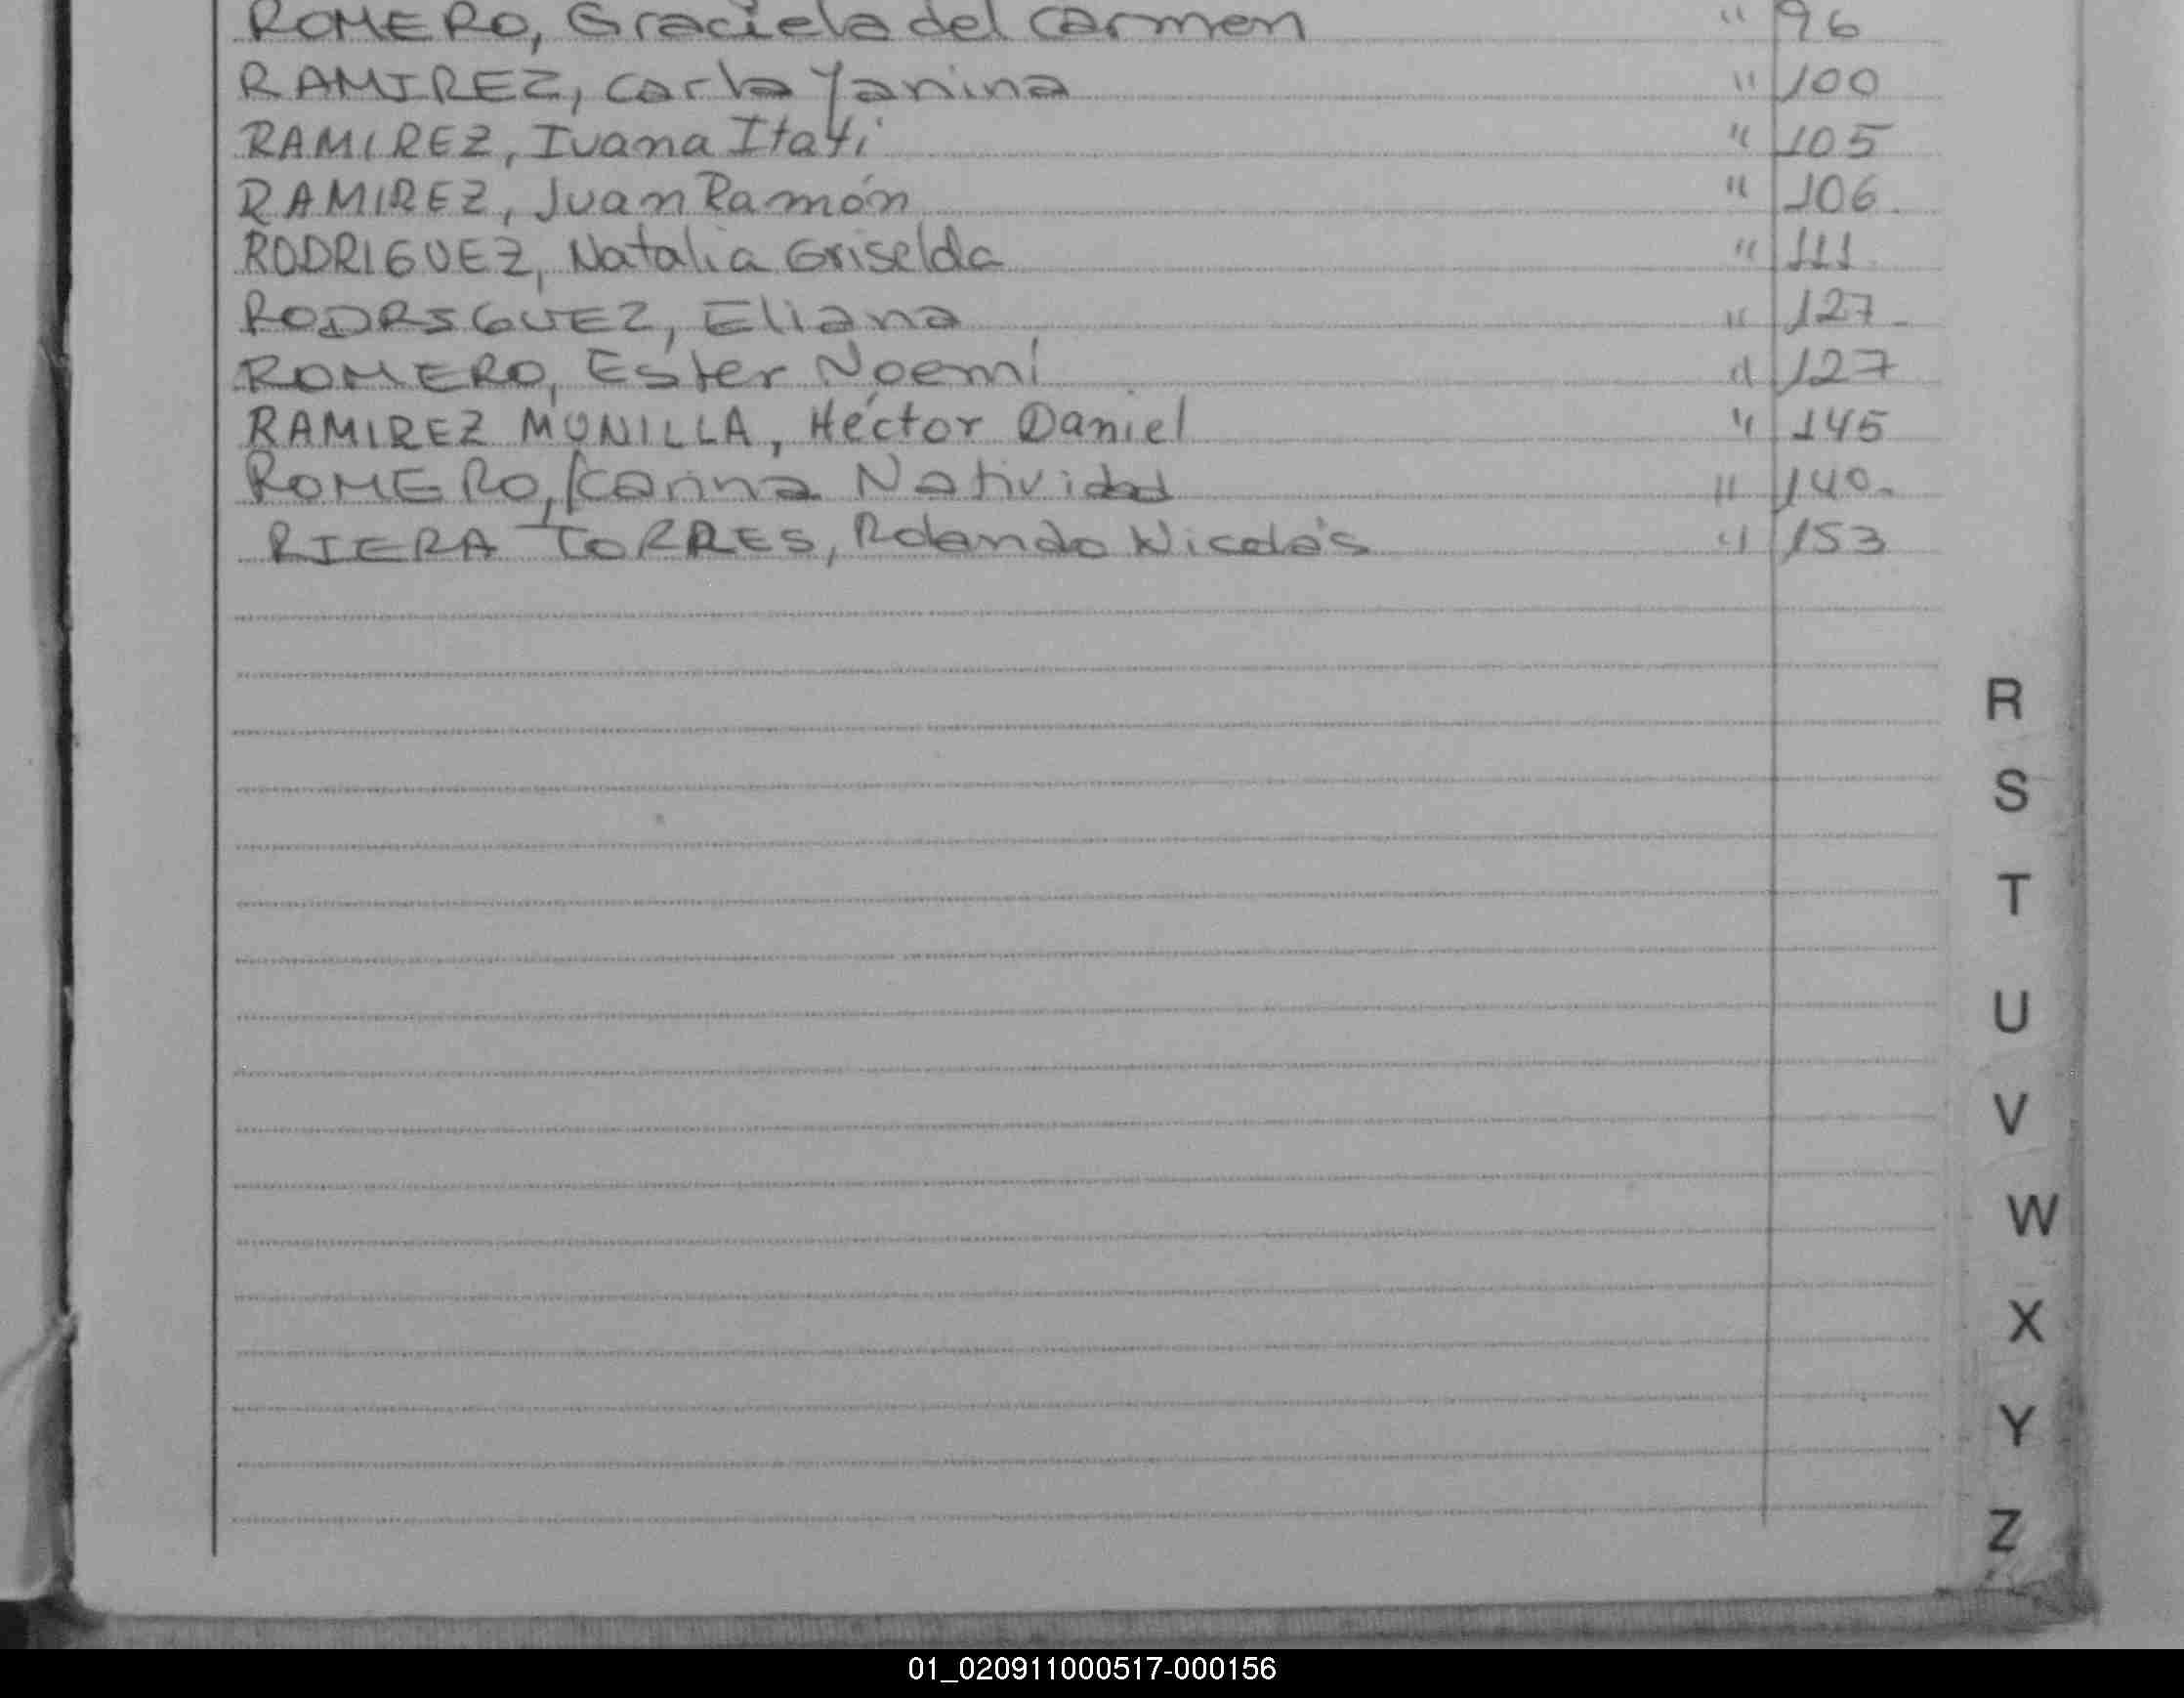 ROMERO, Graciela del Carmen " 96
RAMIREZ, Carla Yanina " 100
RAMIREZ, Ivana Itatí " 105
RAMIREZ, Juan Ramón " 106
RODRIGUEZ, Natalia Griselda " 111
RODRIGUEZ, Eliana " 127
ROMERO, Ester Noemí " 127
RAMIREZ MUNILLA, Héctor Daniel " 145
ROMERO, Karina Natividad " 140
RIERA TORRES, Rolando Nicolás " 153
R
S
T
U
V
W
X
Y
Z
01_020911000517-000156